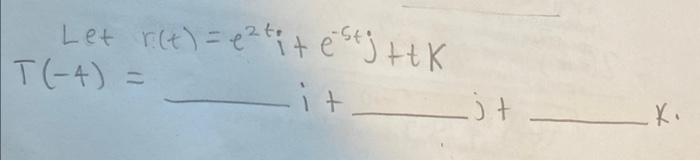 Let r(t) = e^{2t}i + e^{-5t}j + tK
T(-4) = ______ i + ______ j + ______ K.